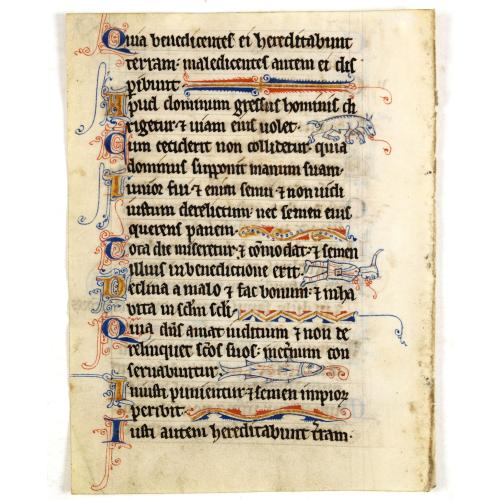 Quia benedicentes ei hereditabunt
terram: maledicentes autem ei dis
peribunt
Apud dominum gressus hominis di
rigetur: ⁊ uiam eius uolet.
Cum ceciderit non collidetur: quia
dominus supponit manum suam.
Iunior fui ⁊ enim senui ⁊ non uidi
iustum derelictum: nec semen eius
querens panem.
Tota die miseretur ⁊ cōmodat: ⁊ semen
illius in benedictione erit.
Declina a malo ⁊ fac bonum: ⁊ inha
bita in sclm scli.
Quia dn̄s amat iudicium ⁊ non de
relinquet scōs suos: ineternum con
seruabuntur.
Iniusti punientur: ⁊ semen impioꝝ
peribit.
Iusti autem hereditabunt tr̄am.